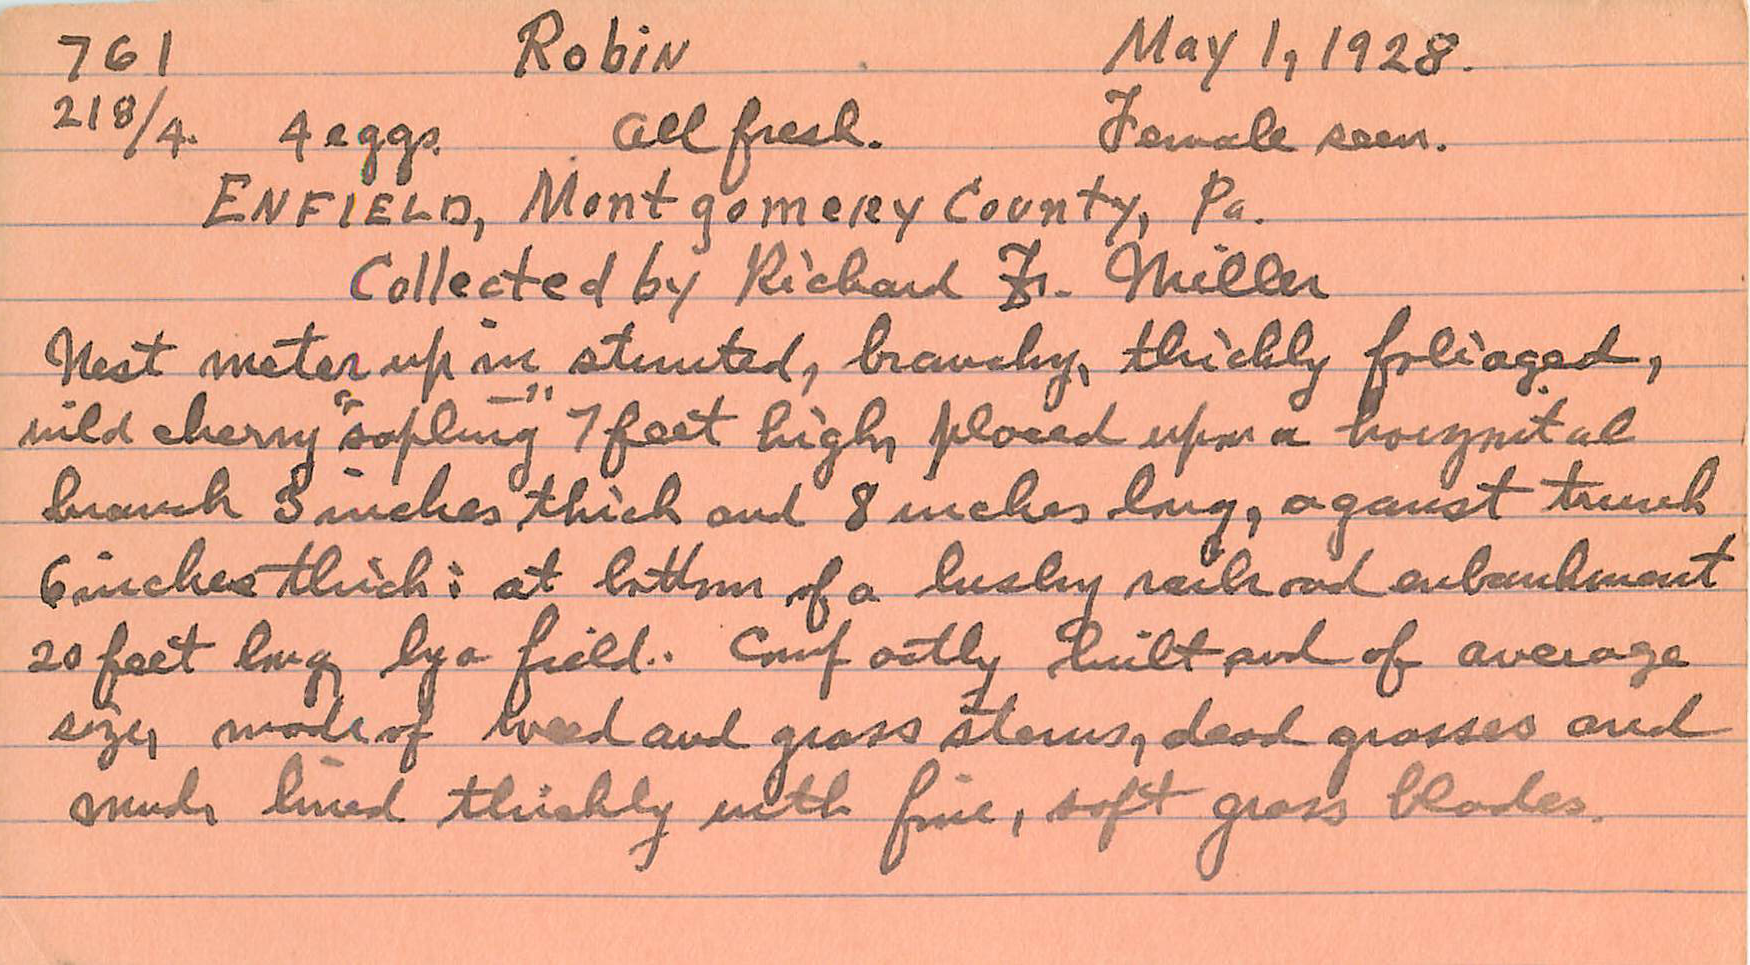 761 Robin May 1, 1928.
218/4. 4 eggs. All fresh. Female seen.
ENFIELD, Montgomery County, Pa.
Collected by Richard F. Miller
Nest meter up in stunted, branchy, thickly foliaged,
wild cherry "sapling" 7 feet high, placed upon a horizontal
branch 3 inches thick and 8 inches long, against trunk
6 inches thick: at bottom of a bushy railroad embankment
20 feet long by a field.. Compactly built and of average
size, made of weed and grass stems, dead grasses and
mud, lined thickly with fine, soft grass blades.